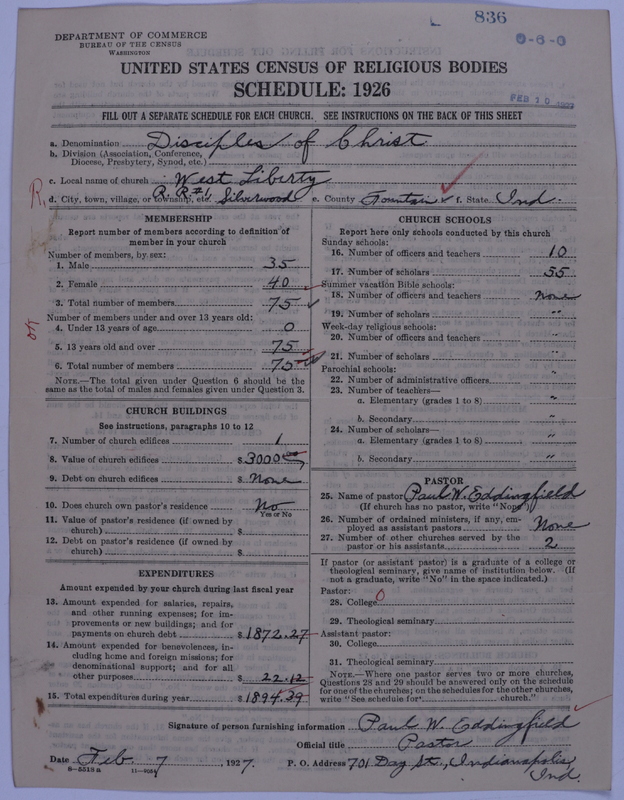 836
0-6-0
DEPARTMENT OF COMMERCE
BUREAU OF THE CENSUS
WASHINGTON
UNITED STATES CENSUS OF RELIGIOUS BODIES
SCHEDULE: 1926
FEB 10 1927
FILL OUT A SEPARATE SCHEDULE FOR EACH CHURCH. SEE INSTRUCTIONS ON THE BACK OF THIS SHEET
a. Denomination Disciples of Christ
b. Division (Association, Conference, Diocese, Presbytery, Synod, etc.)
c. Local name of church West Liberty
R. R. #1
d. City, town, village, or township, etc. Silverwood e. County Fountain f. State Ind.
MEMBERSHIP
Report number of members according to definition of
member in your church
Number of members, by sex:
1. Male 35
2. Female 40
3. Total number of members 75
Number of members under and over 13 years old:
4. Under 13 years of age 0
5. 13 years old and over 75
6. Total number of members 75
NOTE.—The total given under Question 6 should be the
same as the total of males and females given under Question 3.
CHURCH BUILDINGS
See instructions, paragraphs 10 to 12
7. Number of church edifices 1
8. Value of church edifices $ 3000
9. Debt on church edifices $ None
10. Does church own pastor's residence No
Yes or No
11. Value of pastor's residence (if owned by
church) $
12. Debt on pastor's residence (if owned by
church) $
EXPENDITURES
Amount expended by your church during last fiscal year
13. Amount expended for salaries, repairs,
and other running expenses; for im-
provements or new buildings; and for
payments on church debt $ 1872.27
14. Amount expended for benevolences, in-
cluding home and foreign missions; for
denominational support; and for all
other purposes 22.12
15. Total expenditures during year $ 1894.39
CHURCH SCHOOLS
Report here only schools conducted by this church
Sunday schools:
16. Number of officers and teachers 10
17. Number of scholars 55
Summer vacation Bible schools:
18. Number of officers and teachers None
19. Number of scholars "
Week-day religious schools:
20. Number of officers and teachers "
21. Number of scholars "
Parochial schools:
22. Number of administrative officers "
23. Number of teachers—
a. Elementary (grades 1 to 8) "
b. Secondary "
24. Number of scholars—
a. Elementary (grades 1 to 8) "
b. Secondary "
PASTOR
25. Name of pastor Paul W. Eddingfield
(If church has no pastor, write "None")
26. Number of ordained ministers, if any, em-
ployed as assistant pastors None
27. Number of other churches served by the
pastor or his assistants 2
If pastor (or assistant pastor) is a graduate of a college or
theological seminary, give name of institution below. (If
not a graduate, write "No" in the space indicated.)
Pastor:
28. College 0
29. Theological seminary
Assistant pastor:
30. College
31. Theological seminary
NOTE.—Where one pastor serves two or more churches,
Questions 28 and 29 should be answered only on the schedule
for one of the churches; on the schedules for the other churches,
write "See schedule for church."
Signature of person furnishing information Paul W. Eddingfield
Official title Pastor
Date Feb 7, 1927. P. O. Address 701 Day St., Indianapolis,
Ind.
8-5518a 11-9054